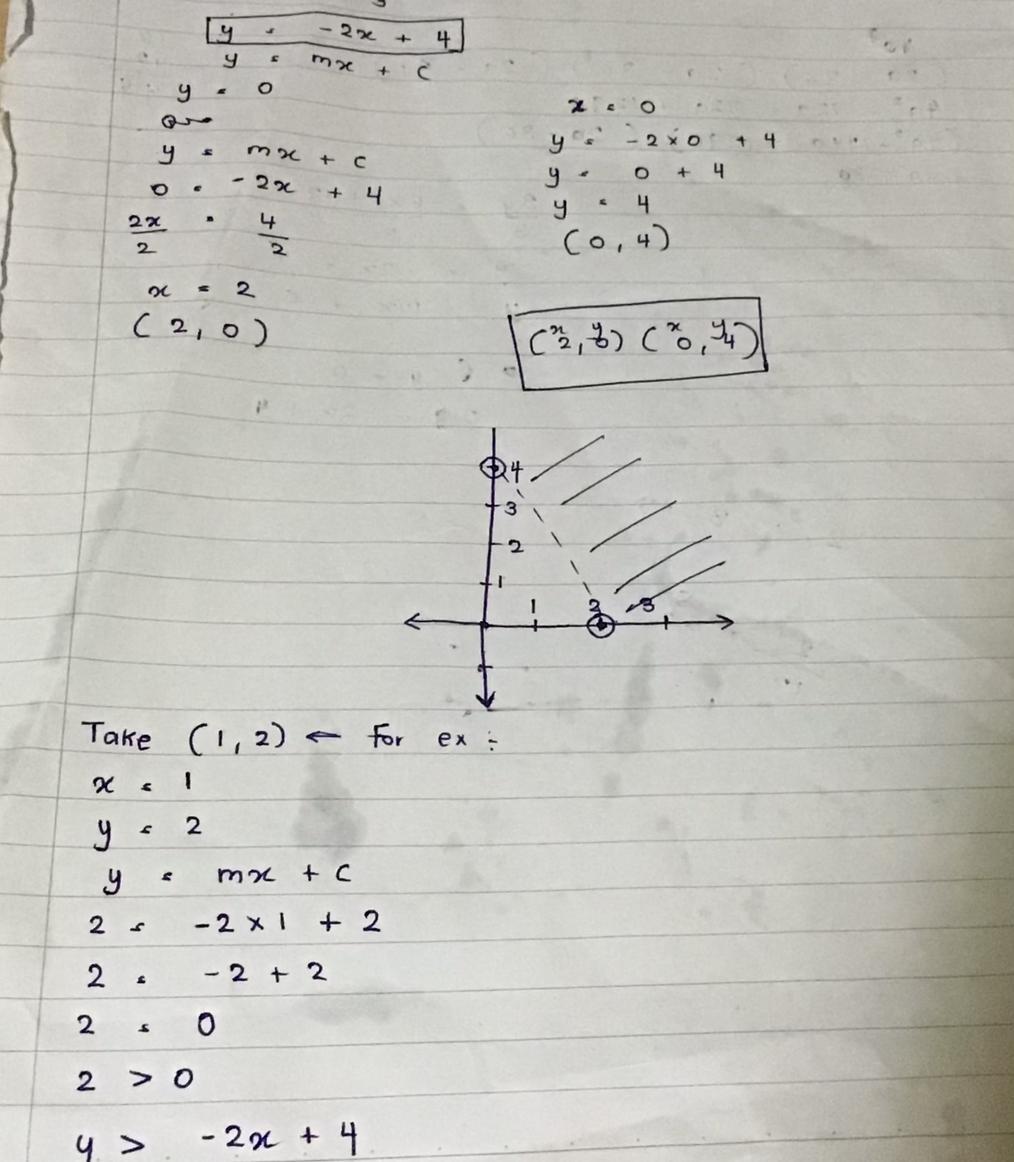 y = -2x + 4
y = mx + c
y = 0
y = mx + c
0 = -2x + 4
2x/2 = 4/2
x = 2
(2, 0)
x = 0
y = -2×0 + 4
y = 0 + 4
y = 4
(0, 4)
(x2, y0) (x0, y4)
4
3
2
1
1 2 3
Take (1, 2) ← for ex :
x = 1
y = 2
y = mx + c
2 = -2 × 1 + 2
2 = -2 + 2
2 = 0
2 > 0
y > -2x + 4